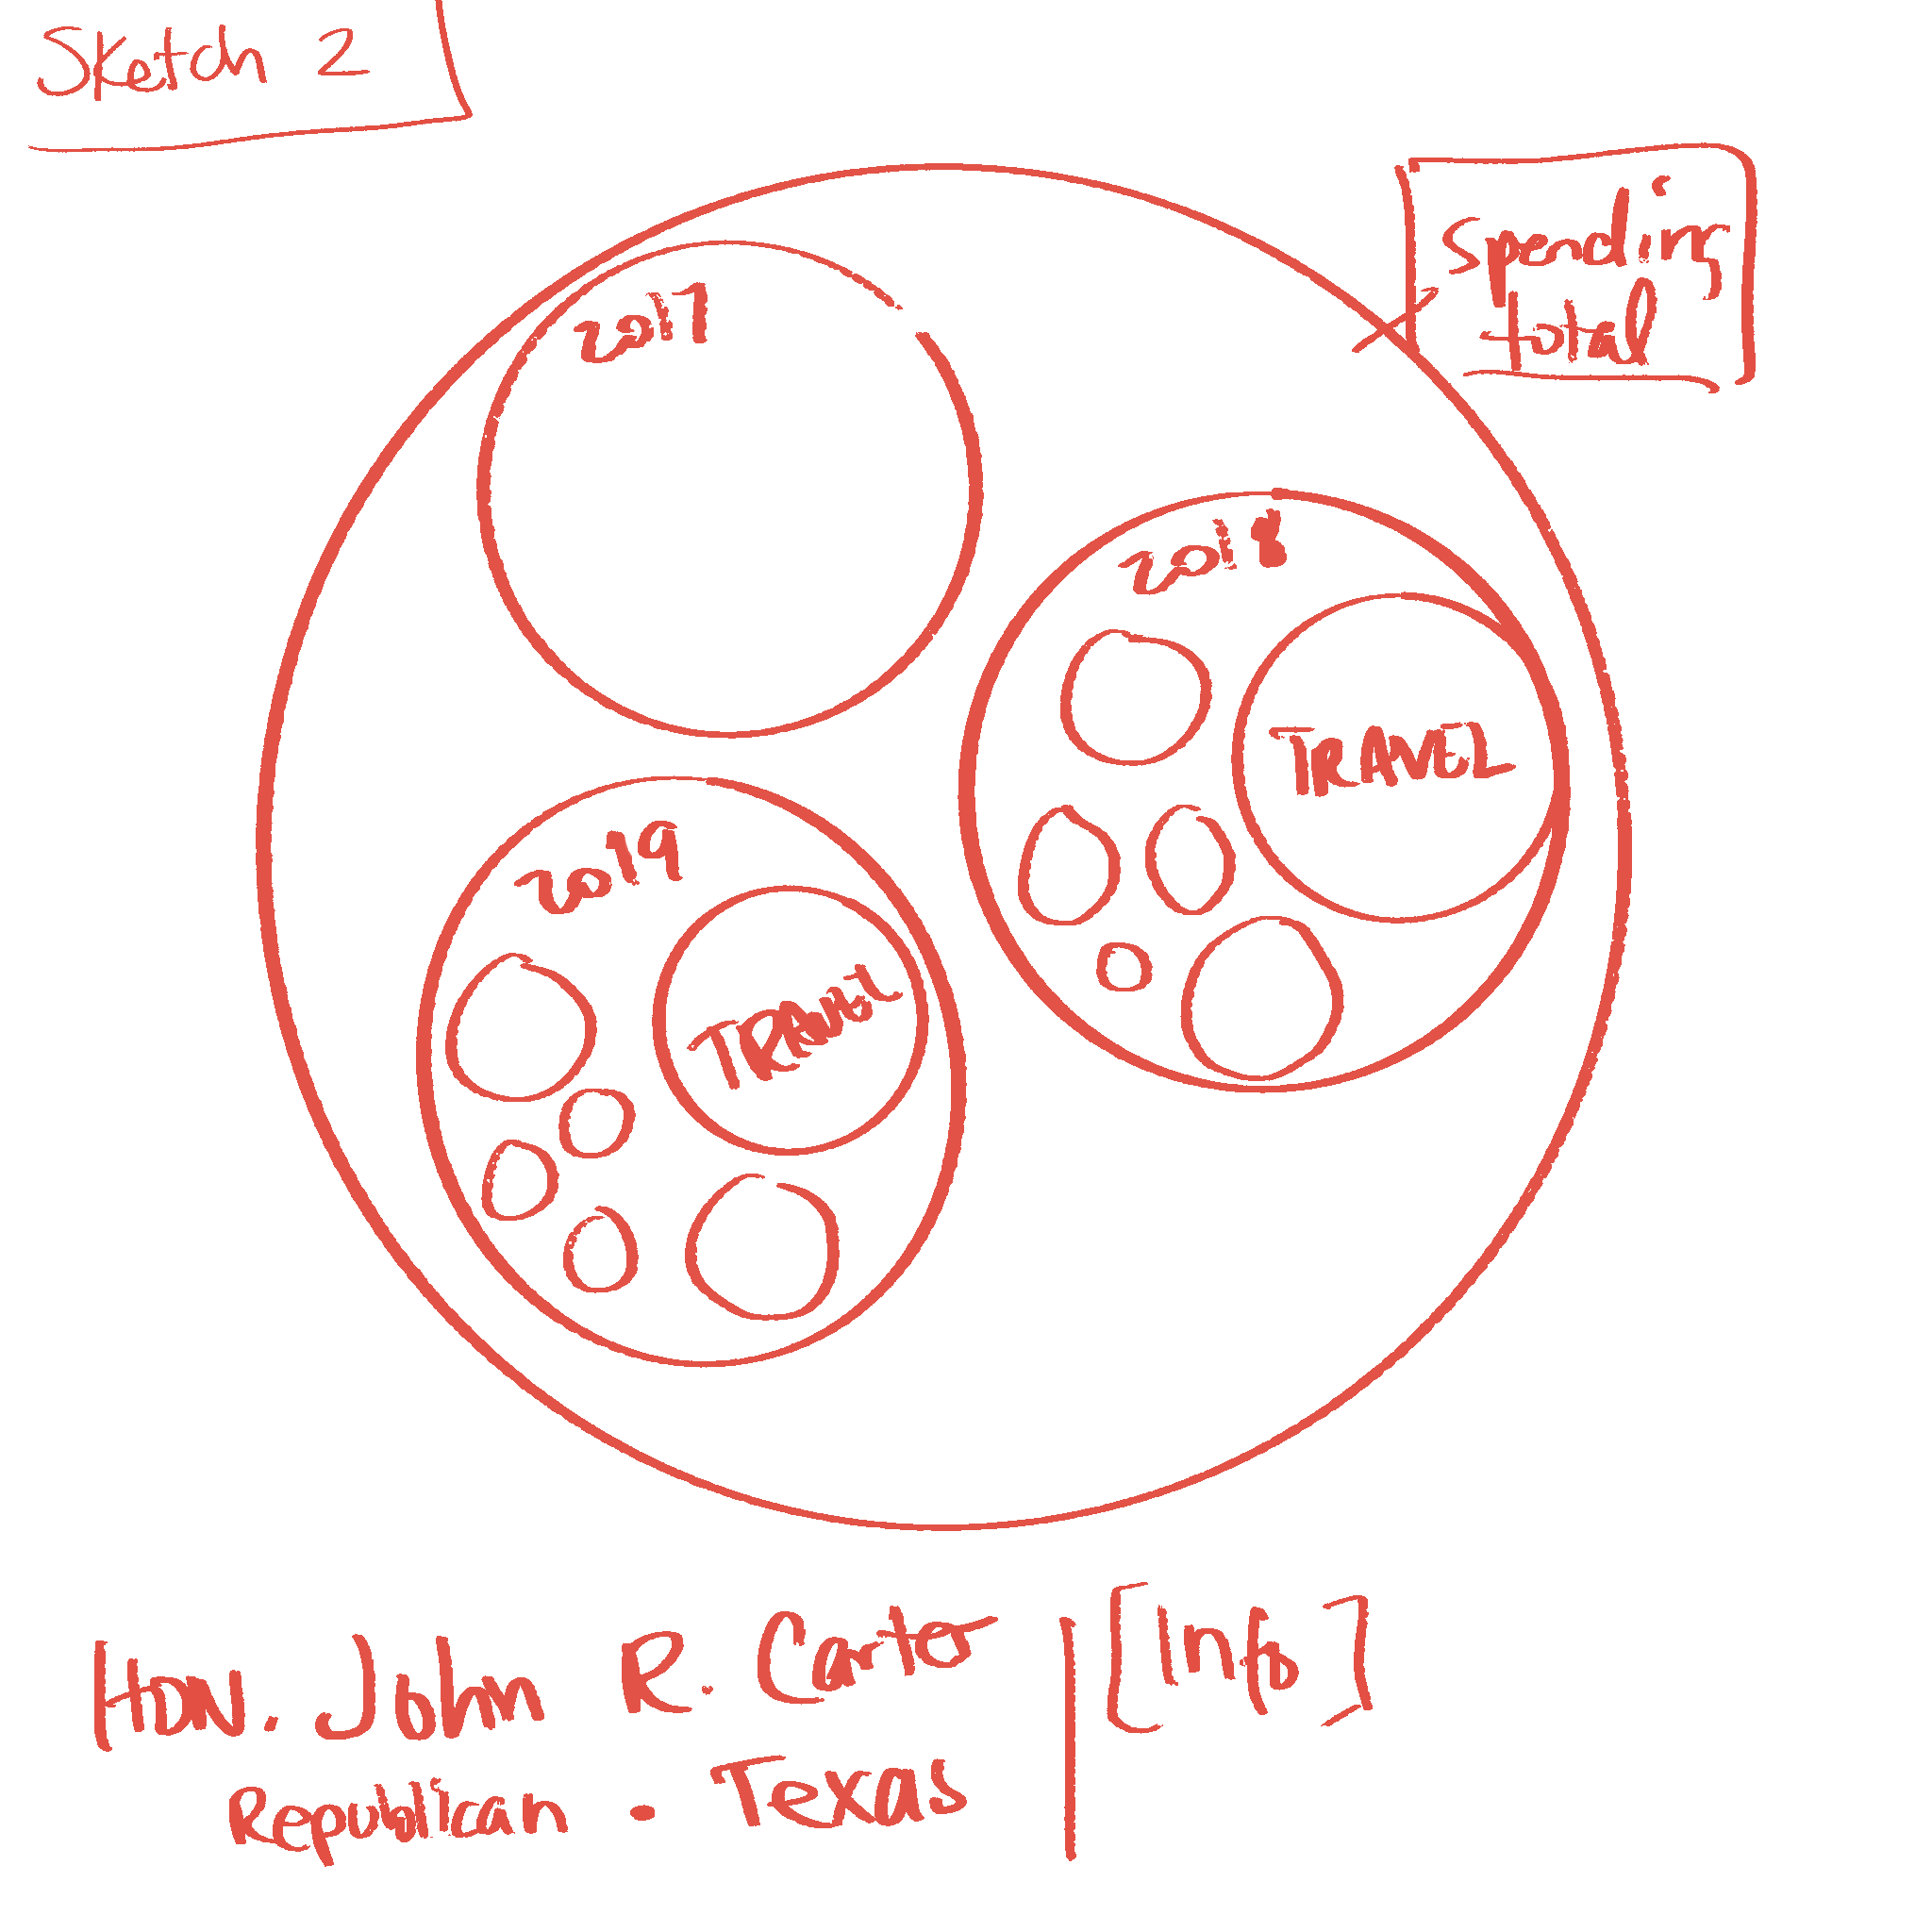 Sketch 2
spending
total
2017
2018
TRAVEL
2019
TRAVEL
HON. John R. Carter
Republican . Texas
[Info]